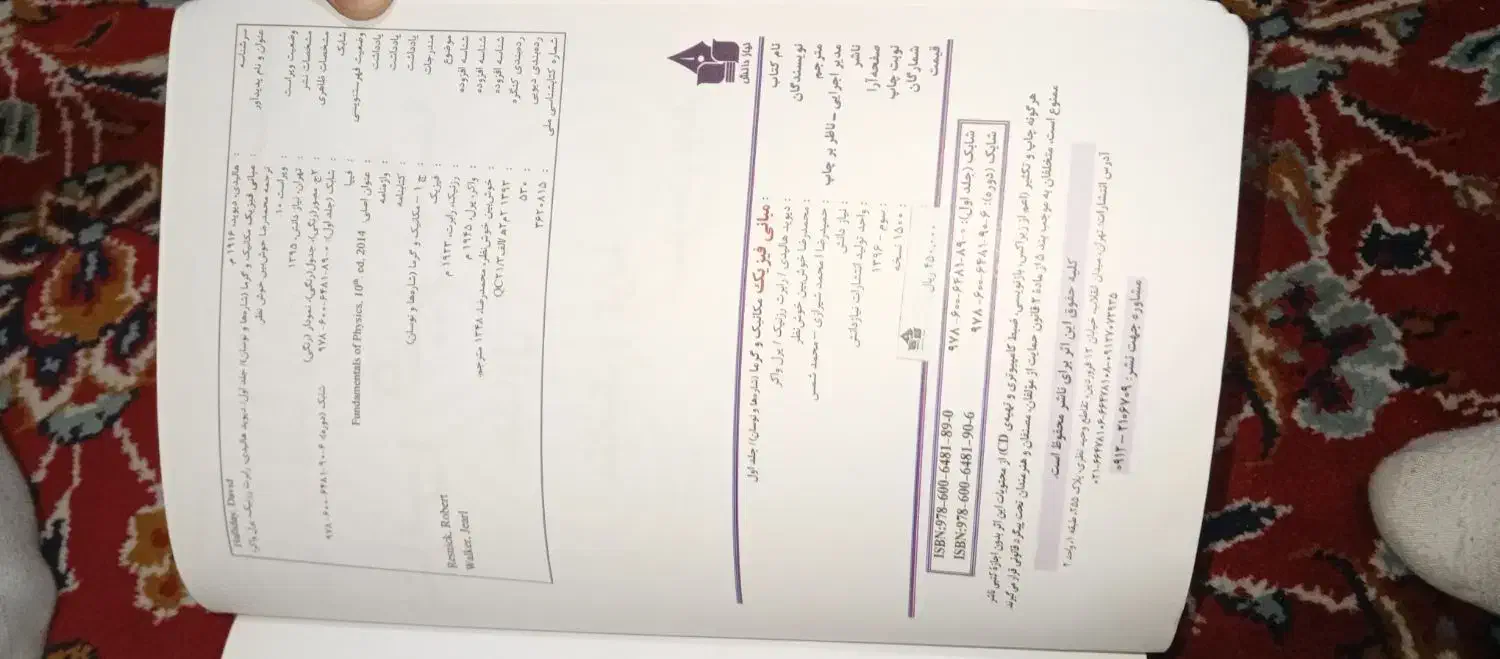 سرشناسه : هالیدی، دیوید، ۱۹۱۶ م Halliday, David
عنوان و نام پدیدآور : مبانی فیزیک مکانیک و گرما (شاره‌ها و نوسان)/ جلد اول/ دیوید هالیدی، رابرت رزنیک، یرل واکر؛
ترجمه محمدرضا خوش‌بین خوش نظر
وضعیت ویراست : ویراست ۱۰
مشخصات نشر : تهران، نیاز دانش، ۱۳۹۵
مشخصات ظاهری : ج۲ مصور(رنگی)، جدول(رنگی)، نمودار (رنگی)
شابک : شابک (جلد اول): ۰-۸۹-۶۴۸۱-۶۰۰-۹۷۸ شابک (دوره): ۶-۹۰-۶۴۸۱-۶۰۰-۹۷۸
وضعیت فهرست‌نویسی : فیپا
یادداشت : عنوان اصلی Fundamentals of Physics, 10th ed, 2014
یادداشت : واژه‌نامه
یادداشت : کتابنامه
مندرجات : ج ۱ – مکانیک و گرما (شاره‌ها و نوسان)
موضوع : فیزیک
شناسه افزوده : رزنیک، رابرت، ۱۹۲۳ م Resnick, Robert
شناسه افزوده : واکر، یرل، ۱۹۴۵ م Walker, Jearl
شناسه افزوده : خوش‌بین خوش‌نظر، محمدرضا، ۱۳۴۸ مترجم
رده‌بندی کنگره : ۱۳۹۳ ۲م۲ه‍/الف QC۲۱/۳
رده‌بندی دیویی : ۵۳۰
شماره کتابشناسی ملی : ۳۶۲۰۸۱۵
نیاز دانش
نام کتاب : مبانی فیزیک مکانیک و گرما (شاره‌ها و نوسان)/ جلد اول
نویسندگان : دیوید هالیدی / رابرت رزنیک / یرل واکر
مترجم : محمدرضا خوش‌بین خوش‌نظر
مدیر اجرایی – ناظر بر چاپ : حمیدرضا محمد شیرازی – محمد شمس
ناشر : نیاز دانش
صفحه‌آرا : واحد تولید انتشارات نیاز دانش
نوبت چاپ : سوم – ۱۳۹۶
شمارگان : ۱۵۰۰ نسخه
قیمت : ۴۵۰,۰۰۰ ریال
شابک (جلد اول): ۰-۸۹-۶۴۸۱-۶۰۰-۹۷۸ ISBN:978-600-6481-89-0
شابک (دوره): ۶-۹۰-۶۴۸۱-۶۰۰-۹۷۸ ISBN:978-600-6481-90-6
هرگونه چاپ و تکثیر (اعم از زیراکس، بازنویسی، ضبط کامپیوتری و تهیه‌ی CD) از محتویات این اثر بدون اجازهٔ کتبی ناشر
ممنوع است، متخلفان به موجب بند ۵ از مادهٔ ۲ قانون حمایت از مؤلفان، مصنفان و هنرمندان تحت پیگرد قانونی قرار می‌گیرند.
کلیه حقوق این اثر برای ناشر محفوظ است.
آدرس انتشارات: تهران، میدان انقلاب، خیابان ۱۲ فروردین، تقاطع وحید نظری، پلاک ۲۵۵، طبقه ۱، واحد ۲
۰۲۱-۶۶۴۷۸۱۰۶-۶۶۴۷۸۱۰۸-۰۹۱۲۷۰۷۳۹۳۵
مشاوره جهت نشر: ۲۱۰۶۷۰۹ – ۰۹۱۲